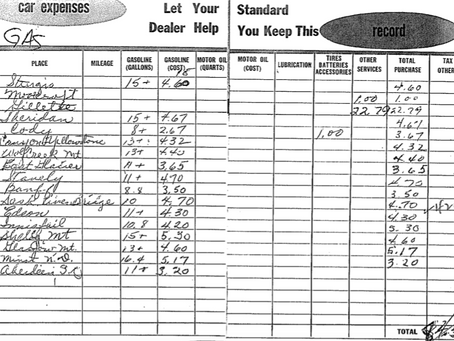 car expenses Let Your Standard
Dealer Help You Keep This record
GAS
PLACE MILEAGE GASOLINE (GALLONS) GASOLINE (COST) MOTOR OIL (QUARTS) MOTOR OIL (COST) LUBRICATION TIRES BATTERIES ACCESSORIES OTHER SERVICES TOTAL PURCHASE TAX
Sturgis 15+ 4.60 4.60
Moorcroft 1.00 1.00
Gillette 22.79 22.79
Sheridan 15+ 4.67 4.67
Cody 8+ 2.67 1.00 3.67
Canyon Yellowstone 15+ 4.32 4.32
Wolf Creek Mt 13+ 4.40 4.40
East Glacier 11+ 3.65 3.65
11+ 4.70 4.70
Banff 8.8 3.50 3.50
Sask River Bridge 10 4.70 4.70
Edson 11+ 4.30 4.30
Innisfail 10.8 4.20
Shelby Mt 15+ 5.30 5.30
Glasgow Mt. 13+ 4.60 4.60
Minot N.D. 16.4 5.17 5.17
Aberdeen S.D. 11+ 3.20 3.20
TOTAL